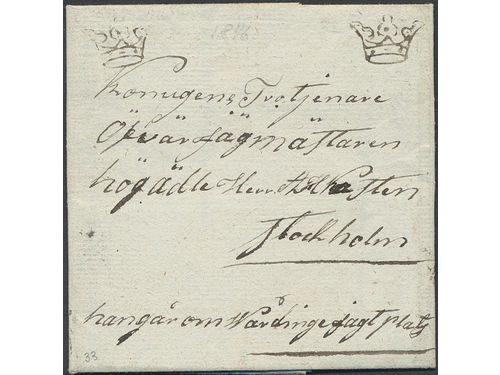 1816
Konugens Trotjenare
Öfverjägmästaren
högädle Herr
Stockholm
hangår om Wårdinge jagt plats
33